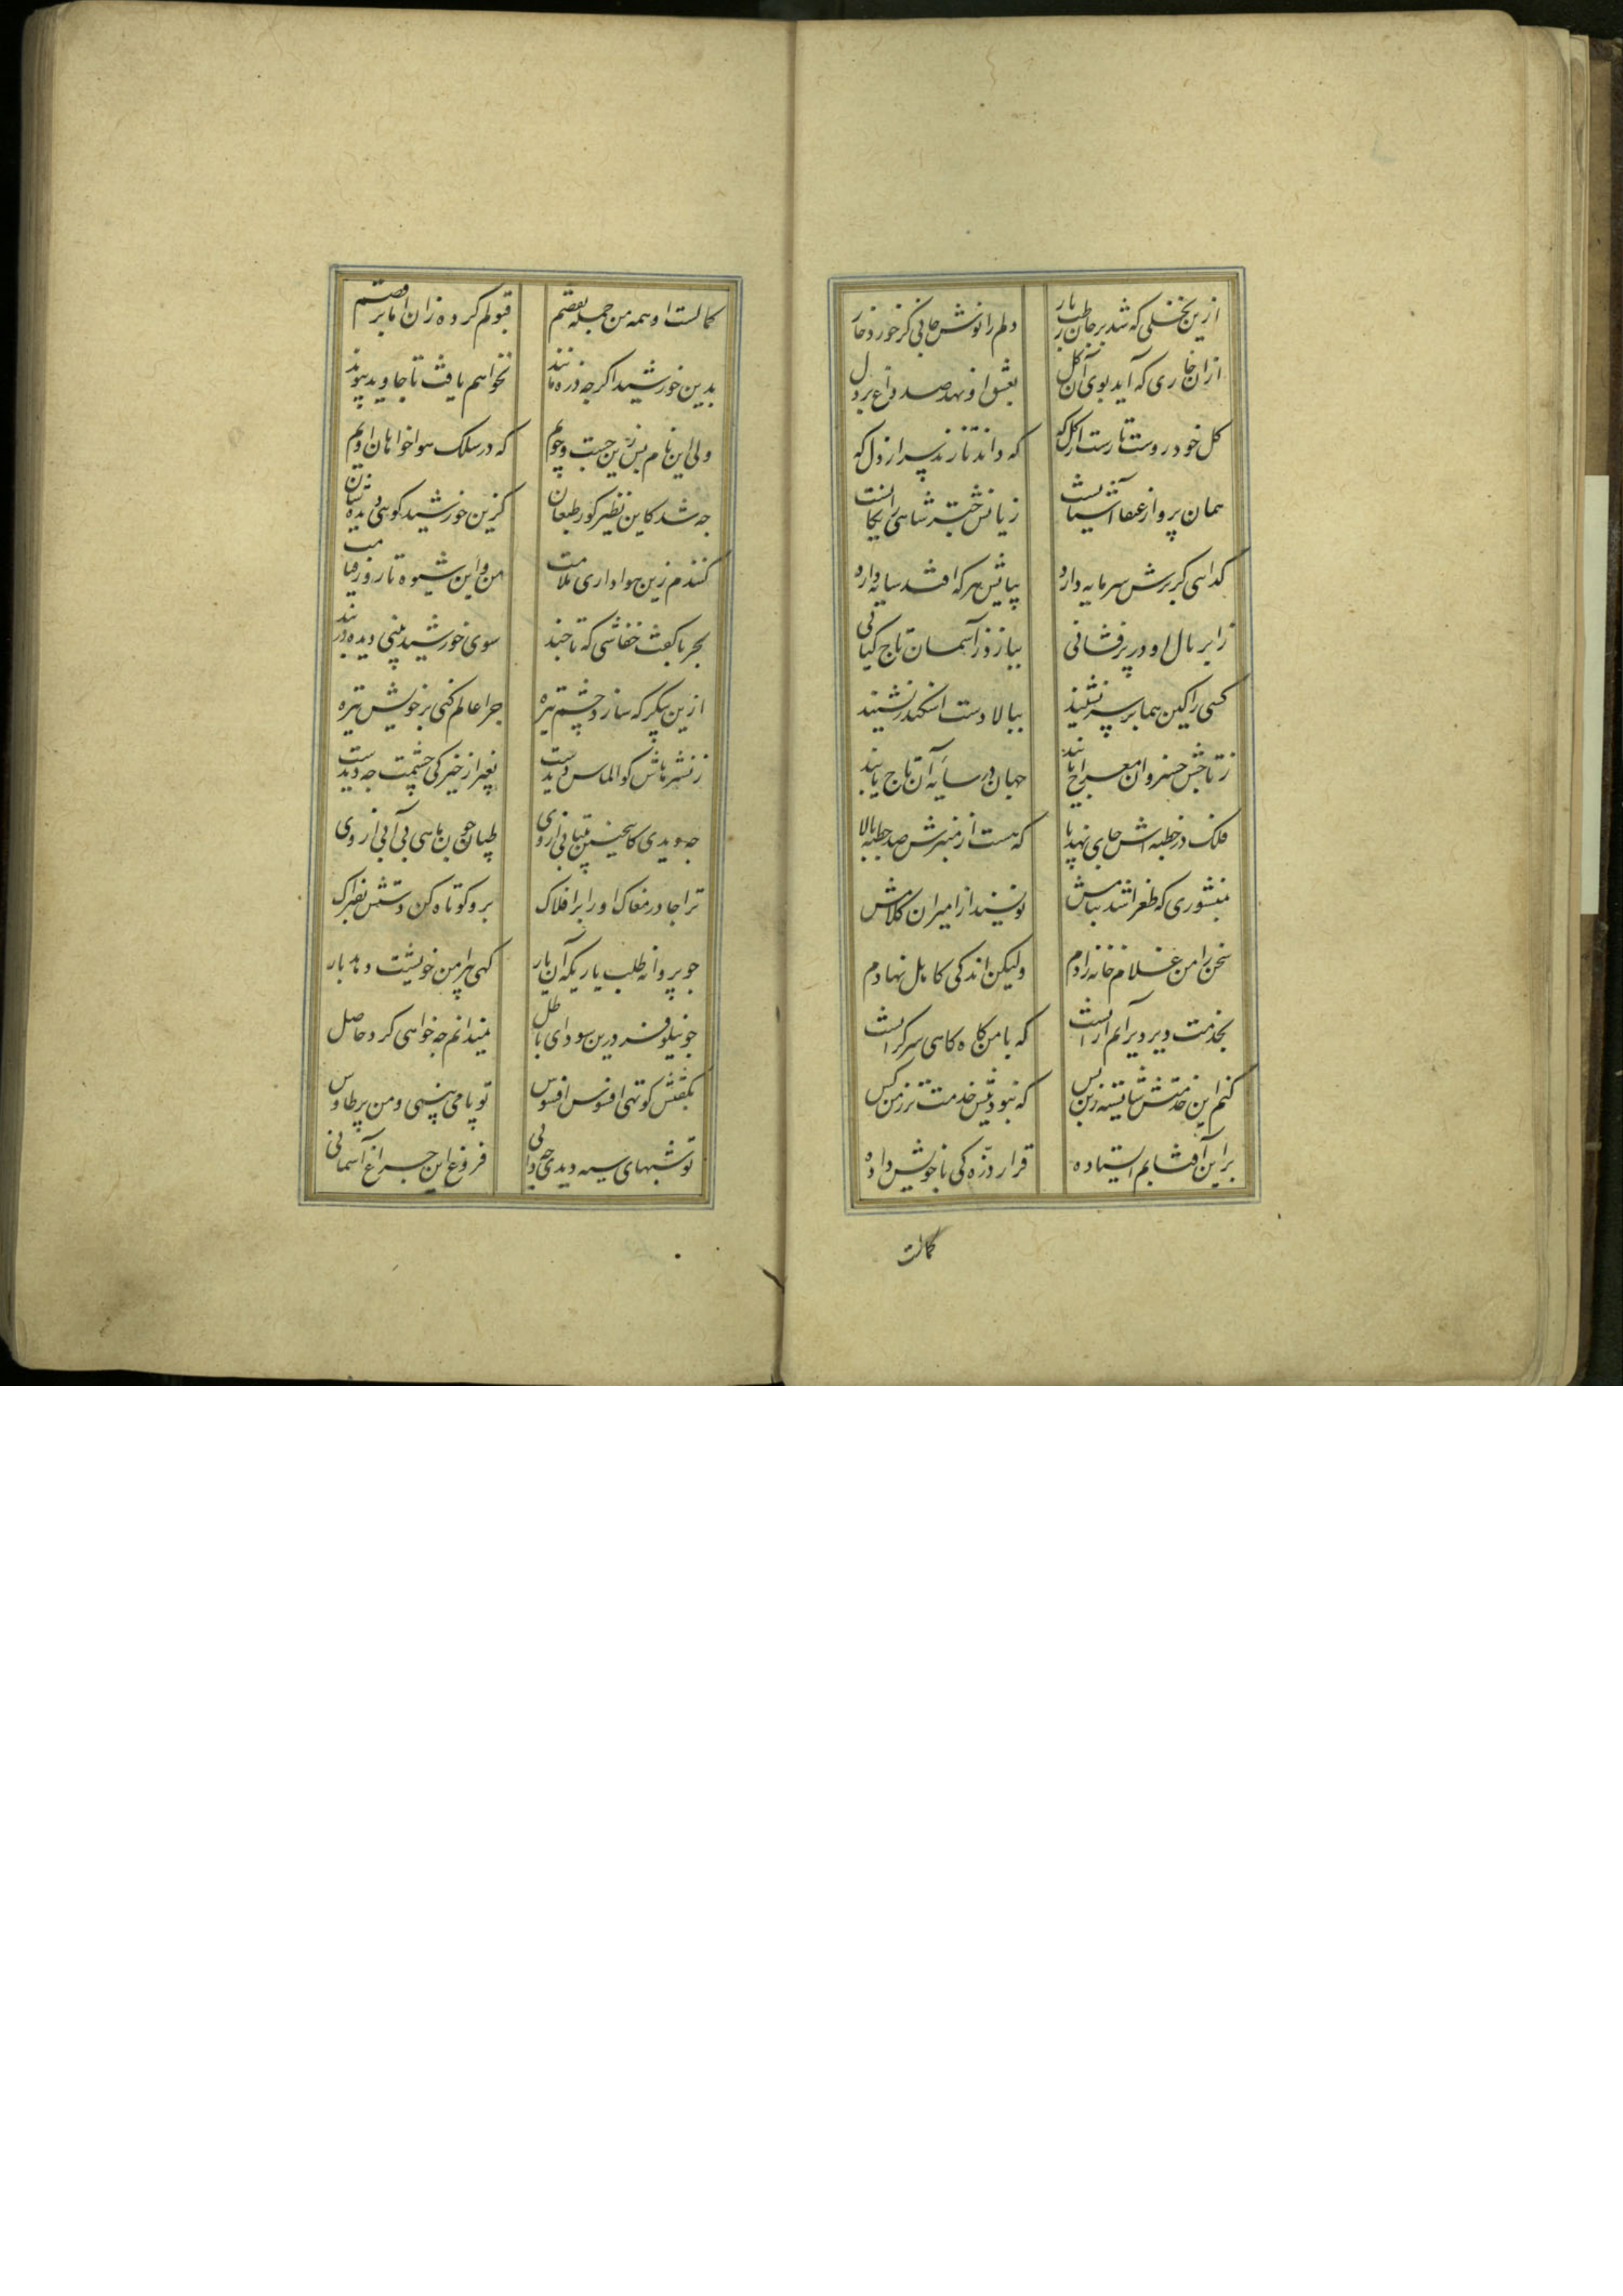 ازین نخلی که شد بر جان رطب بار
دلم را نوش جانی کر خورد خار
ازان خاری که آید بوی آن کل
بعشق او نهد صد داغ بر دل
کل خود روست تا رست از کل که
که داند تا زند سر از دل که
همان پرواز عنقا آشیانست
کدایی کز برش سرمایه دارد
بپایش هر که افتد سایه دارد
ز ابر بال او در پرفشانی
ببازد ز آسمان تاج کیانی
کسی را کین هما بر سر نشیند
ببالا دست اسکندر نشیند
ز تاجش خسروان معراج یابند
جهان در سایه آن تاج یابند
فلک در خطبه اش جایی نهد پا
که هست از منبرش صد خطبه بالا
بمنشوری که طغرا شد بنامش
نویسند از امیران کلامش
سخن را من غلام خانه زادم
ولیکن اندکی کاهل نهادم
بخدمت دیر دیر آرام از آنست
که با من کاه کاهی سر کرانست
کنم این خدمتش شایسته زین پس
که نبود پیش خدمت تر ز من کس
بر این آفتابم ایستاده
قرار ذره کی با خویش داده
کمالست او همه من جمله نقصم
قبولم کرده زان ما بر نقصم
بدین خورشید اکر چه ذره مانند
نخواهم یافت تا جاوید پیوند
ولی این نام بس زین جست و جویم
که در سلک هوا خواهان اویم
چه شد کاین نظیر کور طبعان
کزین خورشید کوهی دیده
کنندم زین هواداری ملامت
من و این شیوه تا روز قیامت
بحربا کفت خفاشی که تا چند
سوی خورشید بینی دیده در بند
ازین پیکر که سازد چشم تیره
چرا عالم کنی بر خویش تیره
ز نشترهاش کو الماس دیدست
بغیر از خیرکی چشمت چه دیدست
چه دیدی کاینچنین بیتابی از وی
طپان چون ماهی بی آبی از وی
ترا جا در مغاک او را بر افلاک
برو کوتاه کن دستش بفتراک
چو پروانه طلب یاری که آن یار
کهی پیرامن خویشت دهد بار
چو نیلوفر درین سودای باطل
نمیدانم چه خواهی کرد حاصل
بکفتش کوتهی افسوس افسوس
تو پا می بینی و من پر طاوس
تو شبهای سیه دیدی چه دانی
فروغ این چراغ آسمانی
کمالست